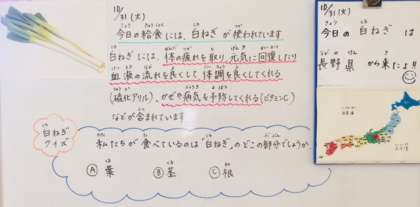 10/31(火)
今日の給食には、白ねぎが使われています
白ねぎには、体の疲れを取り、元気に回復したり
血液の流れを良くして体調を良くしてくれる
(硫化アリル)、かぜや病気を予防してくれる(ビタミンC)
などが含まれています
白ねぎ
クイズ
私たちが食べているのは白ねぎのどこの部分でしょうか
A 葉 B 茎 C 根
10/31(火)
今日の白ねぎは
長野県から来たよ